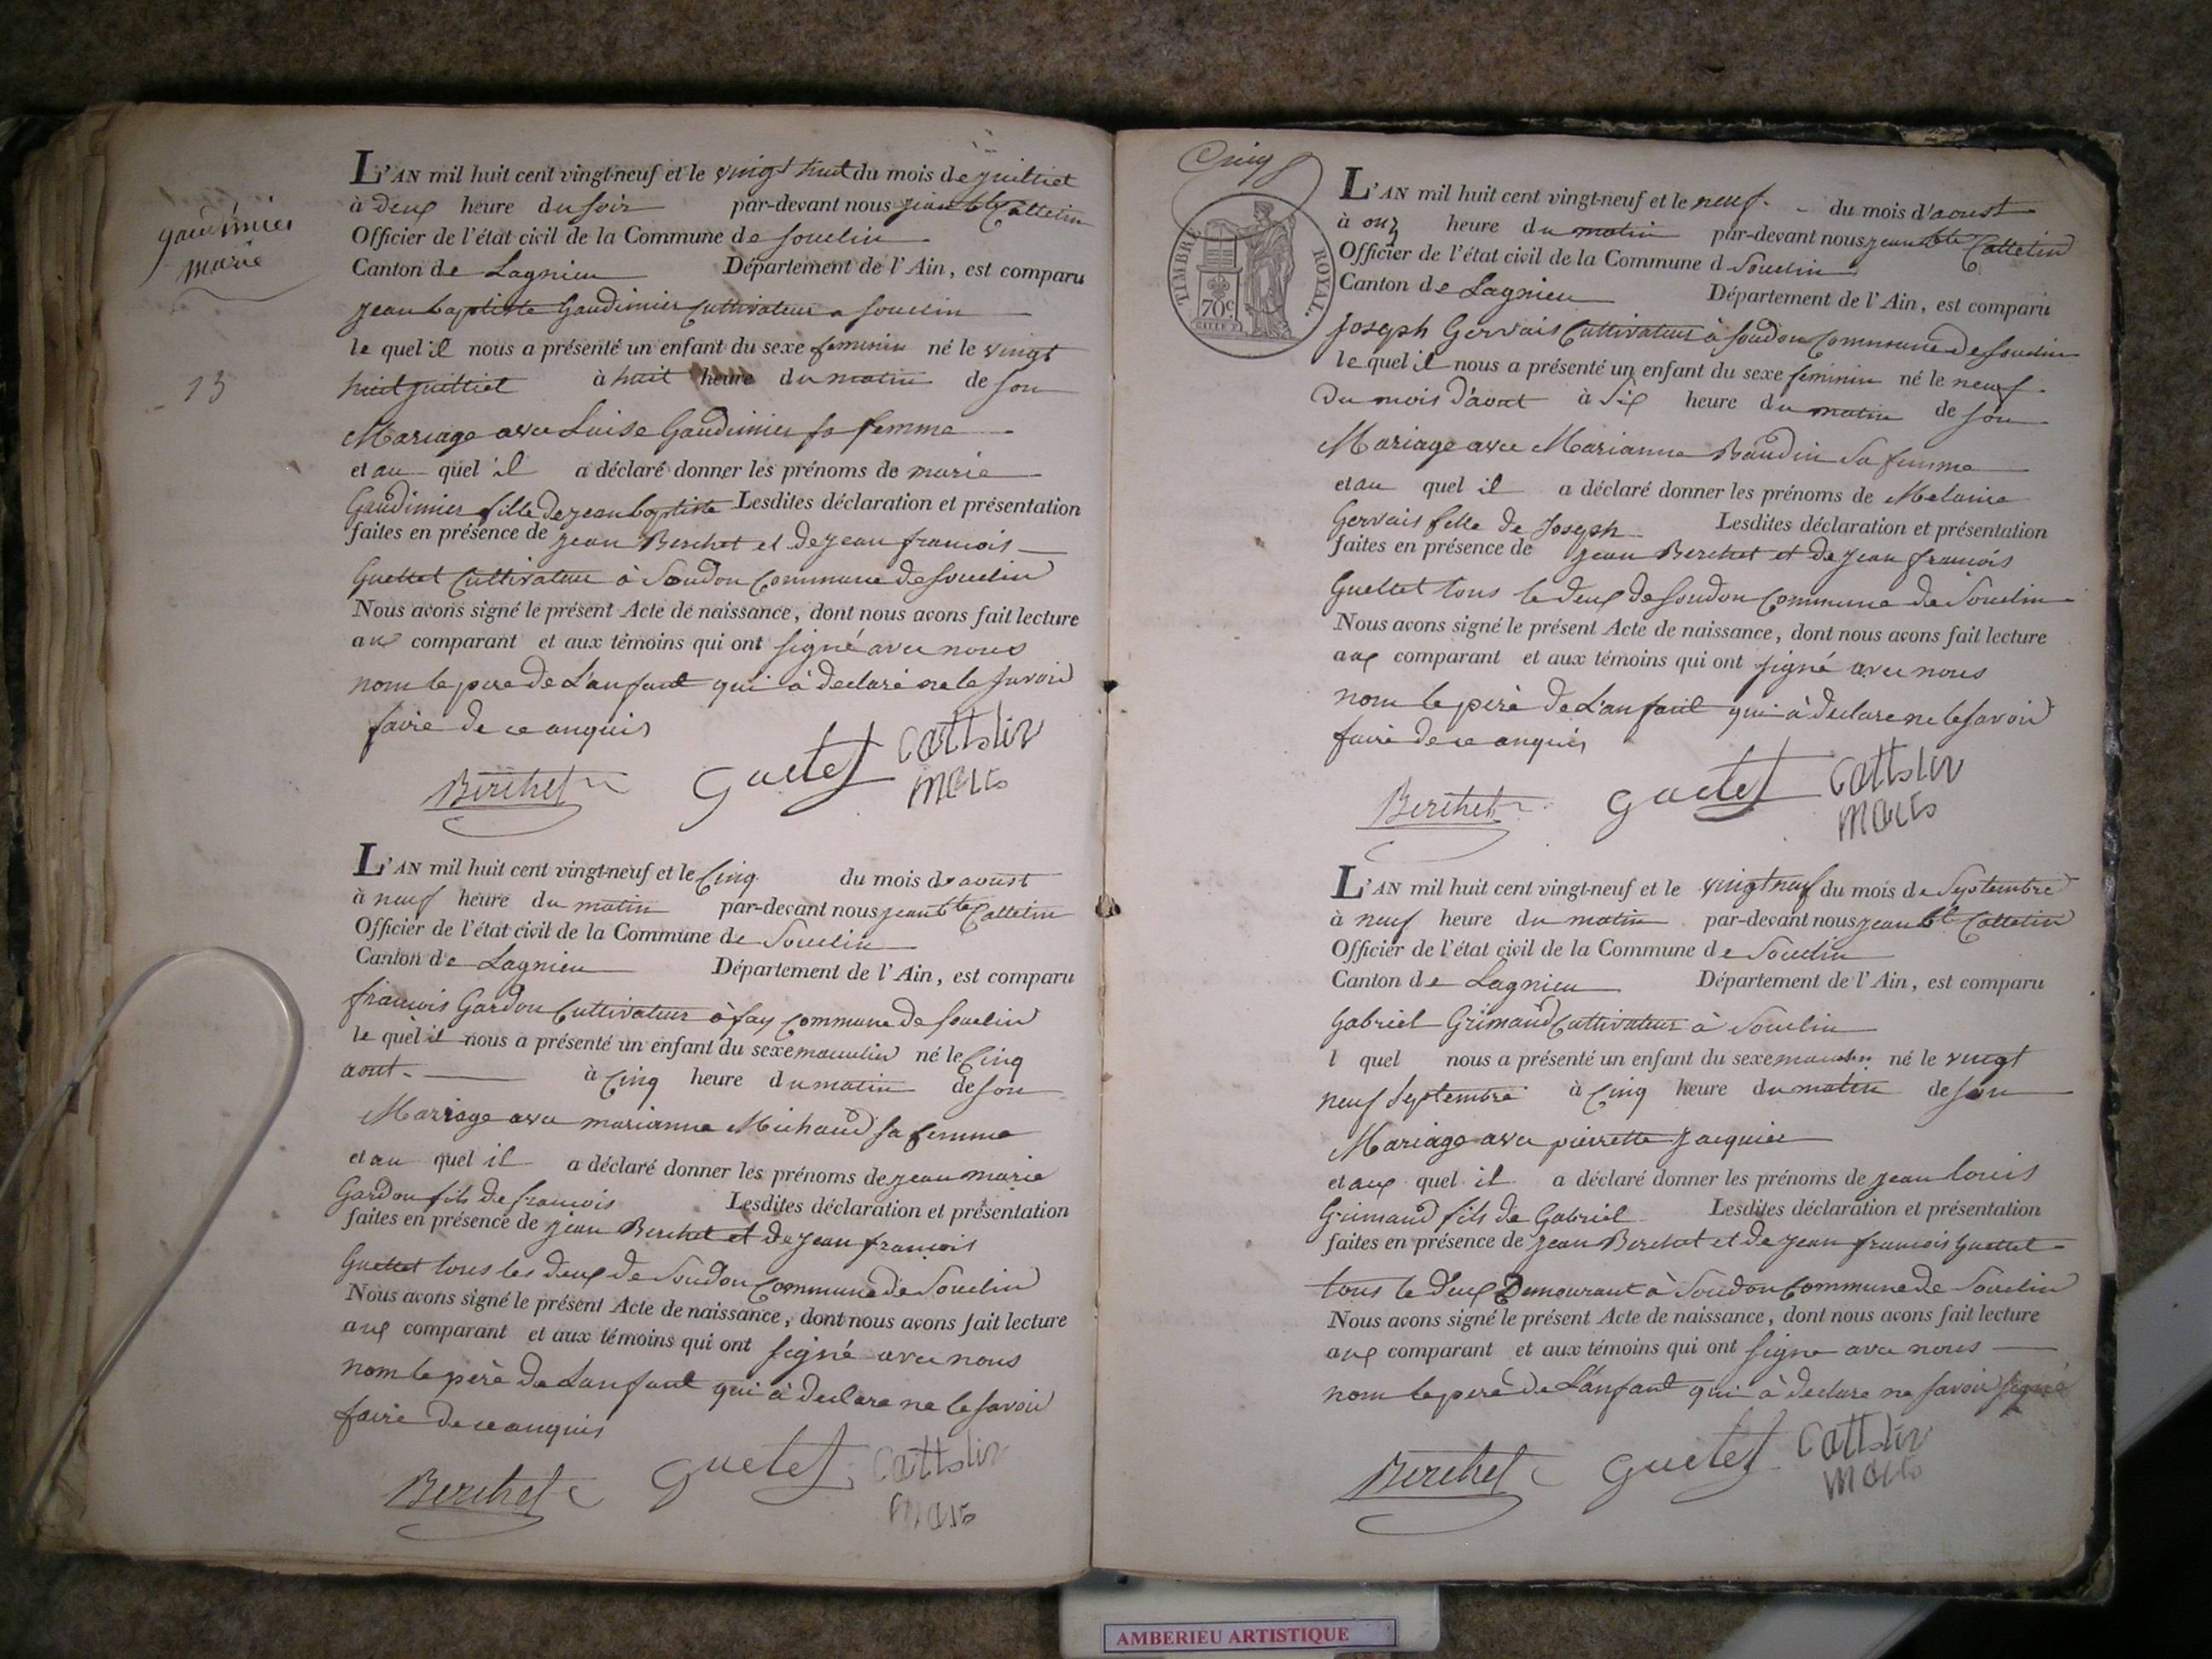 gaudinier
marie
13
L'AN mil huit cent vingt-neuf et le vingt huit du mois de juilliet
à deux heure du soir par-devant nous jean bte Cattelin
Officier de l'état civil de la Commune de Souclin
Canton de Lagnieu Département de l'Ain, est comparu
jean baptiste Gaudinier Cultivateur a souclin
le quel il nous a présenté un enfant du sexe feminin né le vingt
huit juilliet à huit heure du matin de son
Mariage avec Luise Gaudinier sa femme
et au quel il a déclaré donner les prénoms de marie
Gaudinier fille de jean baptiste Lesdites déclaration et présentation
faites en présence de jean Berchet et de jean francois
Guettet Cultivateur à Soudon Commune de Souclin
Nous avons signé le présent Acte de naissance, dont nous avons fait lecture
aux comparant et aux témoins qui ont signé avec nous
nom le pere de L'anfant qui à declaré ne le savoir
faire de ce anquis
Berthet Guetet cattelin
maire
L'AN mil huit cent vingt-neuf et le Cinq du mois de aoust
à neuf heure du matin par-devant nous jean bte Cattelin
Officier de l'état civil de la Commune de Souclin
Canton de Lagnieu Département de l'Ain, est comparu
francois Gardon Cultivateur à fay Commune de Souclin
le quel il nous a présenté un enfant du sexe masculin né le Cinq
aout à Cinq heure du matin de son
Mariage avec marianne Michaud sa femme
et au quel il a déclaré donner les prénoms de jean marie
Gardon fils de francois Lesdites déclaration et présentation
faites en présence de jean Berchet et de jean francois
Guettet tous les deux de Soudon Commune de Souclin
Nous avons signé le présent Acte de naissance, dont nous avons fait lecture
aux comparant et aux témoins qui ont signé avec nous
nom le père de L'anfant qui à declare ne le savoir
faire de ce anquis
Berthet Guetet cattelin
maire
Cinq
TIMBRE ROYAL
70c
L'AN mil huit cent vingt-neuf et le neuf du mois d'aoust
à onz heure du matin par-devant nous jean bte Cattelin
Officier de l'état civil de la Commune d Souclin
Canton de Lagnieu Département de l'Ain, est comparu
Joseph Gervais Cultivateur à soudon Commune de Souclin
le quel il nous a présenté un enfant du sexe feminin né le neuf
du mois d'aout à Six heure du matin de son
Mariage avec Marianne Baudin Sa femme
et au quel il a déclaré donner les prénoms de Melanie
Gervais fille de Joseph Lesdites déclaration et présentation
faites en présence de jean Berchet et de jean francois
Guettet tous le deux de soudon Commune de Souclin
Nous avons signé le présent Acte de naissance, dont nous avons fait lecture
aux comparant et aux témoins qui ont signé avec nous
nom le père de L'anfant qui à declare ne le savoir
faire de ce anquis
Berthet Guetet cattelin
maire
L'AN mil huit cent vingt-neuf et le vingt neuf du mois de Septembre
à neuf heure du matin par-devant nous jean bt Cattelin
Officier de l'état civil de la Commune de Souclin
Canton de Lagnieu Département de l'Ain, est comparu
Gabriel Grimaud Cultivateur à Souclin
l quel nous a présenté un enfant du sexe masculin né le vingt
neuf Septembre à Cinq heure du matin de son
Mariage avec pierrette Jacquier
et aux quel il a déclaré donner les prénoms de jean louis
Grimaud fils de Gabriel Lesdites déclaration et présentation
faites en présence de jean Berchet et de jean francois Guettet
tous le deux Demourant à Soudon Commune de Souclin
Nous avons signé le présent Acte de naissance, dont nous avons fait lecture
aux comparant et aux témoins qui ont signe avec nous
nom le pere de L'anfant qui à declare ne savoir signé
Berthet Guetet cattelin
maire
AMBERIEU ARTISTIQUE